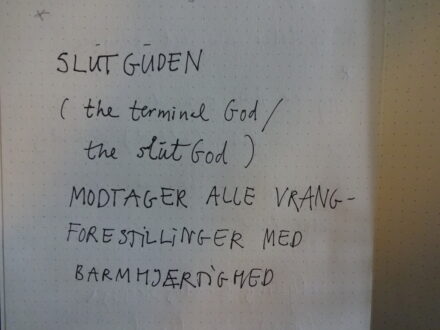 SLŪTGŪDEN
( the terminal God /
the slūt God )
MODTAGER ALLE VRANG-
FORESTILLINGER MED
BARMHJÆRTIGHED